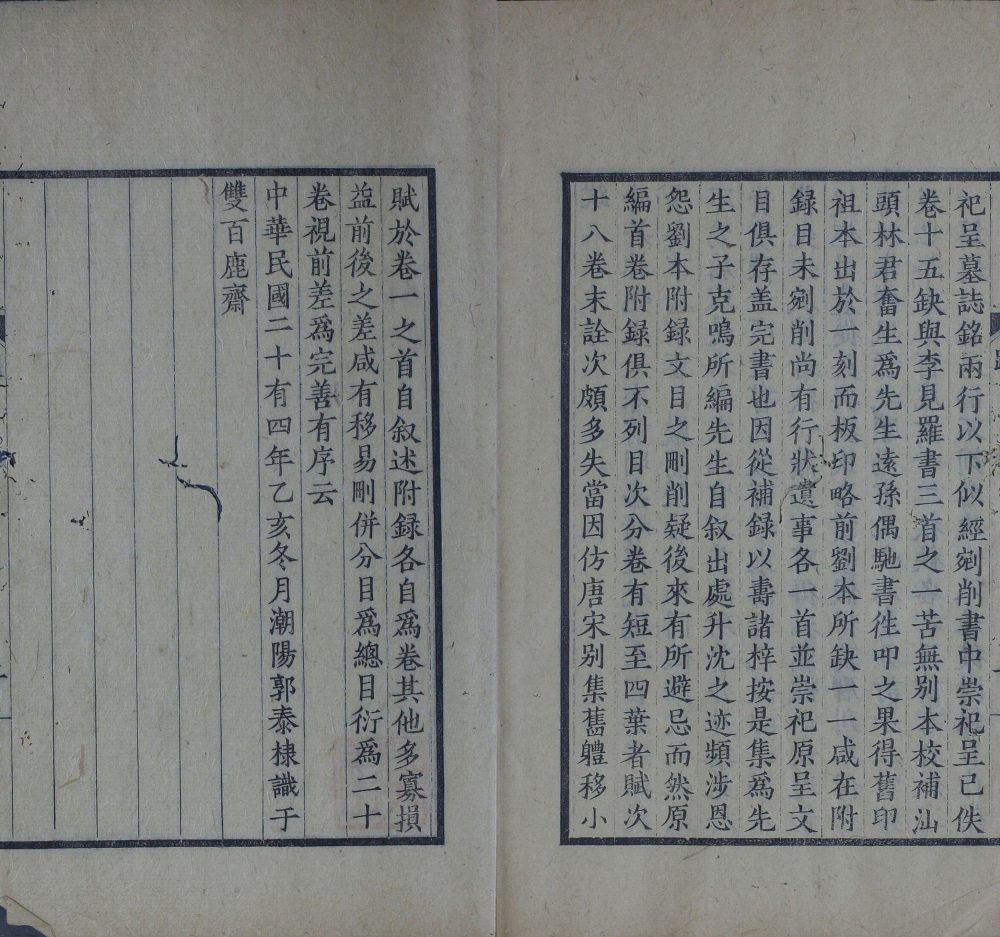 祀呈墓誌銘兩行以下似經剜削書中崇祀呈已佚
卷十五缺與李見羅書三首之一苦無別本校補汕
頭林君奮生爲先生遠孫偶馳書徃叩之果得舊印
祖本出於一刻而板印略前劉本所缺一一咸在附
録目未剜削尚有行狀遺事各一首並崇祀原呈文
目俱存盖完書也因從補録以壽諸梓按是集爲先
生之子克鳴所編先生自叙出處升沈之迹頻涉恩
怨劉本附録文目之刪削疑後來有所避忌而然原
編首卷附録俱不列目次分卷有短至四葉者賦次
十八卷末詮次頗多失當因仿唐宋别集舊軆移小
賦於卷一之首自叙述附録各自爲卷其他多寡損
益前後之差咸有移易刪併分目爲總目衍爲二十
卷視前差爲完善有序云
中華民國二十有四年乙亥冬月潮陽郭泰棣識于
雙百鹿齋